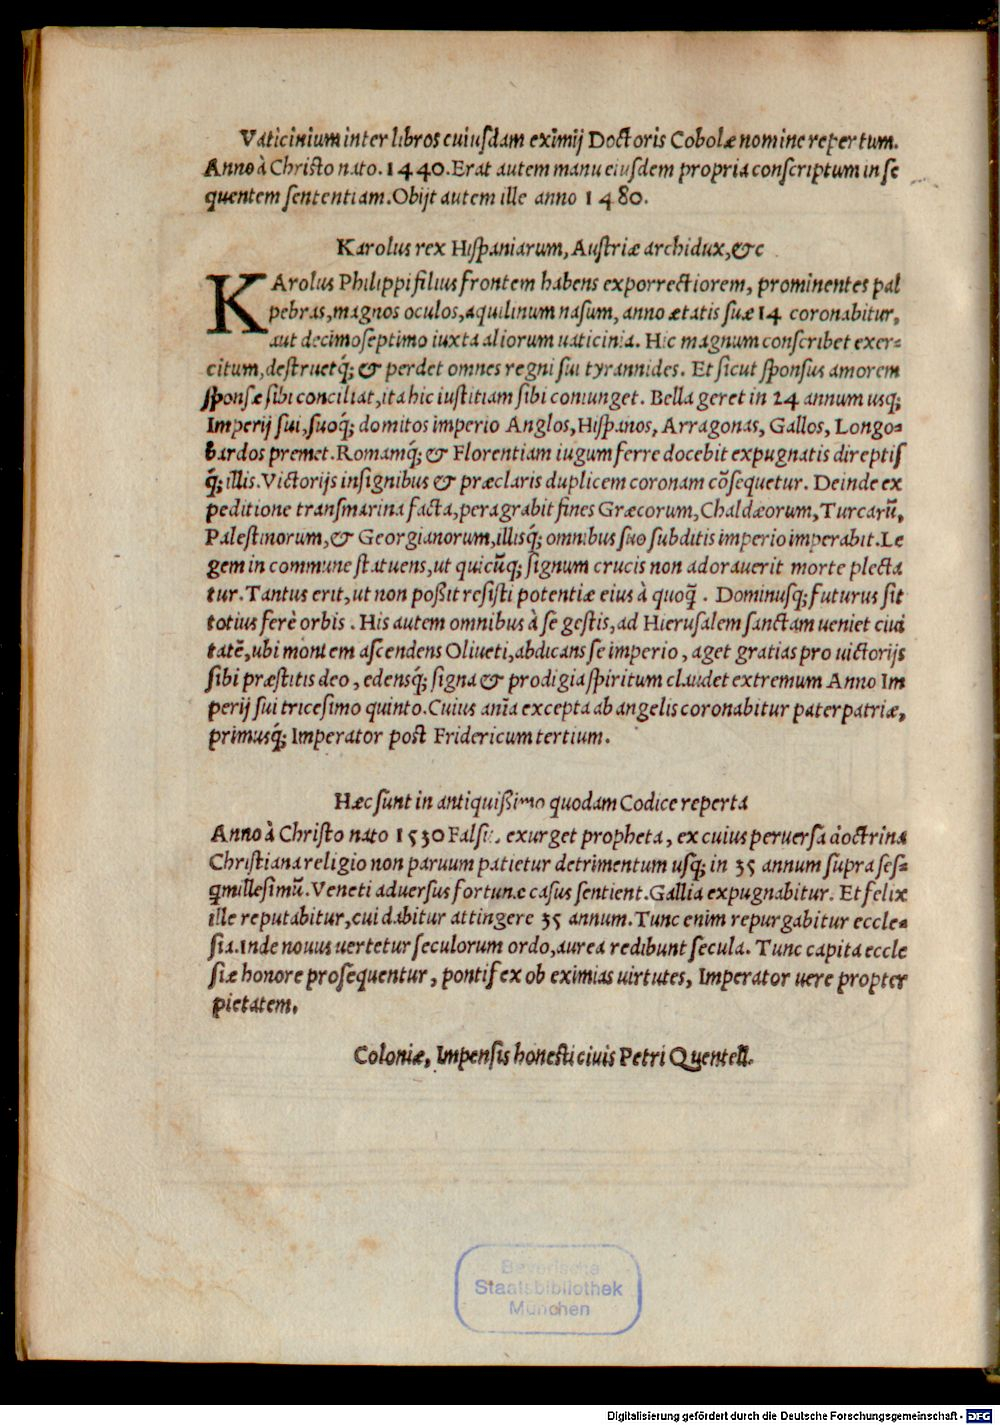 Vaticinium inter libros cuiusdam eximij Doctoris Cobolæ nomine repertum.
Anno à Christo nato. 1440. Erat autem manu eiusdem propria conscriptum in se
quentem sententiam. Obijt autem ille anno 1480.
Karolus rex Hispaniarum, Austriæ archidux, &c
KArolus Philippi filius frontem habens exporrectiorem, prominentes pal
pebras, magnos oculos, aquilinum nasum, anno ætatis suæ 14 coronabitur,
aut decimoseptimo iuxta aliorum uaticinia. Hic magnum conscribet exer-
citum, destruetq́; & perdet omnes regni sui tyrannides. Et sicut sponsus amorem
sponsæ sibi conciliat, ita hic iustitiam sibi coniunget. Bella geret in 24 annum usq;
Imperij sui, suoq́; domitos imperio Anglos, Hispanos, Arragonas, Gallos, Longo-
bardos premet. Romamq́; & Florentiam iugum ferre docebit expugnatis direptis
q́; illis. Victorijs insignibus & præclaris duplicem coronam cõsequetur. Deinde ex
peditione transmarina facta, peragrabit fines Græcorum, Chaldæorum, Turcarũ,
Palestinorum, & Georgianorum, illisq́; omnibus suo subditis imperio imperabit. Le
gem in commune statuens, ut quicũq; signum crucis non adorauerit morte plecta
tur. Tantus erit, ut non poßit resisti potentiæ eius à quoq̃. Dominusq; futurus sit
totius ferè orbis. His autem omnibus à se gestis, ad Hierusalem sanctam ueniet ciui
tatẽ, ubi montem ascendens Oliueti, abdicans se imperio, aget gratias pro uictorijs
sibi præstitis deo, edensq́; signa & prodigia spiritum claudet extremum Anno Im
perij sui tricesimo quinto. Cuius aĩa excepta ab angelis coronabitur pater patriæ,
primusq́; Imperator post Fridericum tertium.
Hæc sunt in antiquißimo quodam Codice reperta
Anno à Christo nato 1530 Falsus exurget propheta, ex cuius peruersa doctrina
Christiana religio non paruum patietur detrimentum usq; in 35 annum supra ses-
q̃millesimũ. Veneti aduersus fortunæ casus sentient. Gallia expugnabitur. Et felix
ille reputabitur, cui dabitur attingere 35 annum. Tunc enim repurgabitur eccle-
sia. Inde nouus uertetur seculorum ordo, aurea redibunt secula. Tunc capita eccle
siæ honore prosequentur, pontifex ob eximias uirtutes, Imperator uere propter
pietatem.
Coloniæ, Impensis honesti ciuis Petri Quentell.
Bayerische
Staatsbibliothek
München
Digitalisierung gefördert durch die Deutsche Forschungsgemeinschaft - DFG